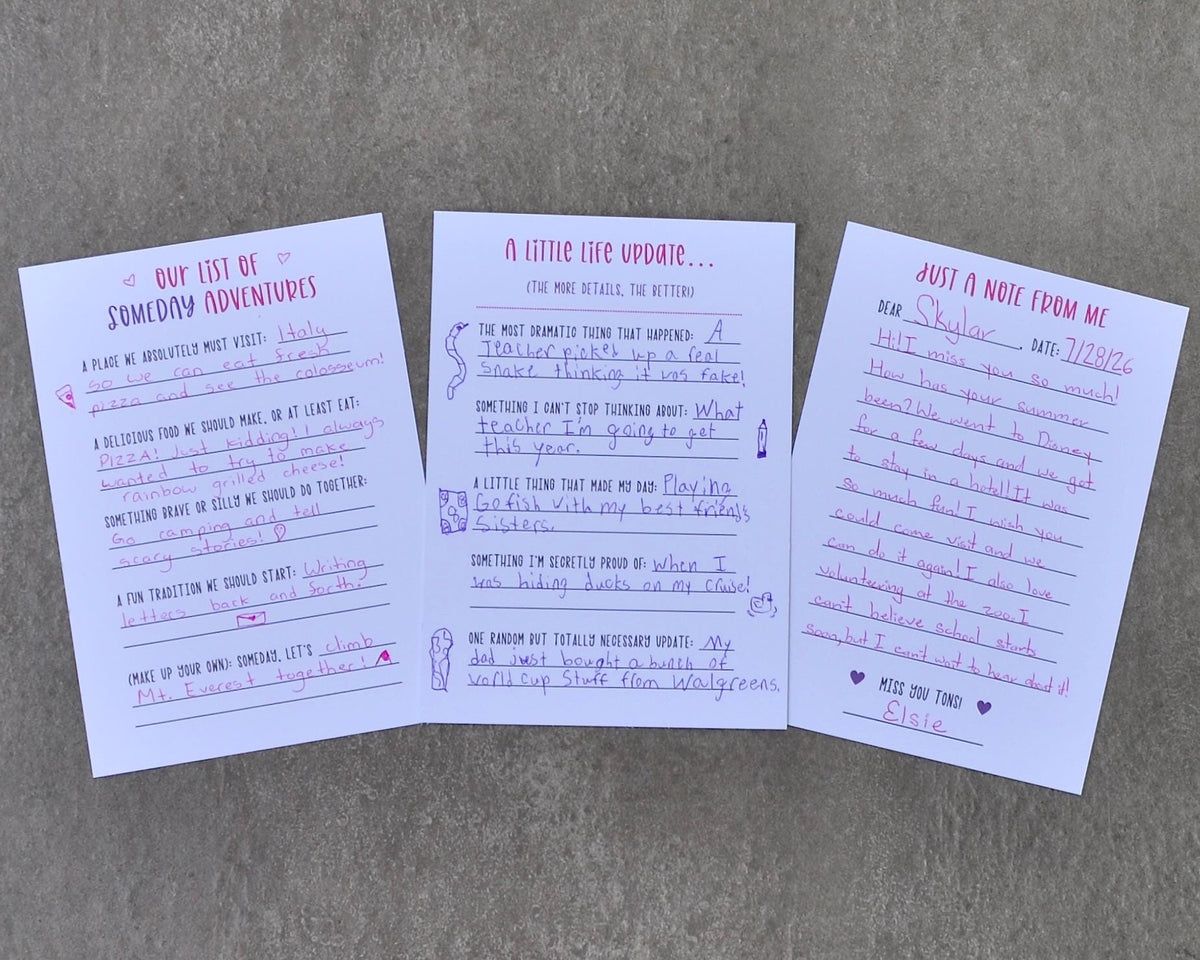 OUR LIST OF
SOMEDAY ADVENTURES
A PLACE WE ABSOLUTELY MUST VISIT: Italy
so we can eat fresh
pizza and see the colosseum!
A DELICIOUS FOOD WE SHOULD MAKE, OR AT LEAST EAT:
PIZZA! Just kidding! I always
wanted to try to make
rainbow grilled cheese!
SOMETHING BRAVE OR SILLY WE SHOULD DO TOGETHER:
Go camping and tell
scary stories!
A FUN TRADITION WE SHOULD START: Writing
letters back and forth.
(MAKE UP YOUR OWN): SOMEDAY, LET'S climb
Mt. Everest together!
A LITTLE LIFE UPDATE...
(THE MORE DETAILS, THE BETTER!)
THE MOST DRAMATIC THING THAT HAPPENED: A
Teacher picked up a real
snake thinking it was fake!
SOMETHING I CAN'T STOP THINKING ABOUT: What
teacher I'm going to get
this year.
A LITTLE THING THAT MADE MY DAY: Playing
Go fish with my best friend's
sisters.
SOMETHING I'M SECRETLY PROUD OF: when I
was hiding ducks on my cruise!
ONE RANDOM BUT TOTALLY NECESSARY UPDATE: My
dad just bought a bunch of
world cup stuff from Walgreens.
JUST A NOTE FROM ME
DEAR Skylar, DATE: 7/28/26
Hi! I miss you so much!
How has your summer
been? We went to Disney
for a few days and we got
to stay in a hotel! It was
so much fun! I wish you
could come visit and we
can do it again! I also love
volunteering at the zoo. I
can't believe school starts
soon, but I can't wait to hear about it!
MISS YOU TONS!
Elsie